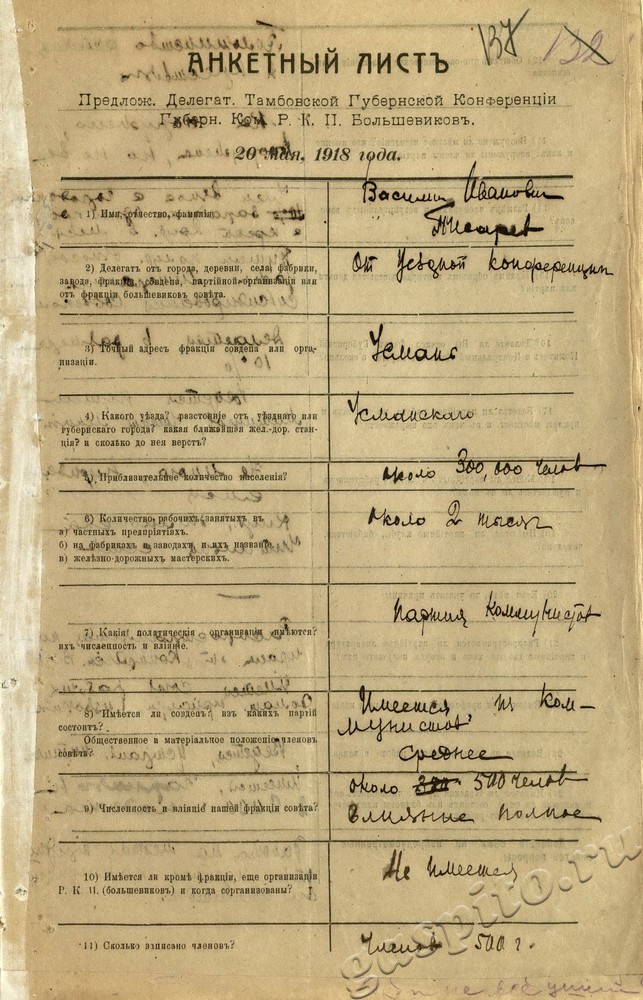 137 132
АНКЕТНЫЙ ЛИСТЪ
Предлож. Делегат. Тамбовской Губернской Конференціи
Губерн. Ком. Р. К. П. Большевиковъ.
20 мая, 1918 года.
1) Имя, отчество, фамилія?
Василий Иванович
Писарев
2) Делегатъ отъ города, деревни, села, фабрики,
завода, фракціи совдепа, партійной организаціи или
отъ фракціи большевиковъ совѣта.
От уѣздной конференции
3) Точный адресъ фракціи совдепа или орга-
низаціи.
Усмань
4) Какого уѣзда? разстояніе отъ уѣзднаго или
губернскаго города? какая ближайшая жел.-дор. стан-
ція? и сколько до нея верстъ?
Усманскаго
5) Приблизительное количество населенія?
около 300,000 челов
6) Количество рабочихъ занятыхъ въ
а) частныхъ предпріятіяхъ.
б) на фабрикахъ и заводахъ и ихъ названіе.
в) желѣзно-дорожныхъ мастерскихъ.
около 2 тысяч
7) Какія политическія организаціи имѣются?
ихъ численность и вліяніе.
партия коммунистов
8) Имѣется ли совдепъ, изъ какихъ партій
состоитъ?
Общественное и матеріальное положеніе членовъ
совѣта?
Имеется из ком-
мунистов
среднее
9) Численность и вліяніе нашей фракціи совѣта?
около 300 500 челов
влияние полное
10) Имѣется ли кромѣ фракціи, еще организаціи
Р. К. П. (большевиковъ) и когда сорганизованы?
Не имеется
11) Сколько записано членовъ?
Членов 500 г.
gaspito.ru